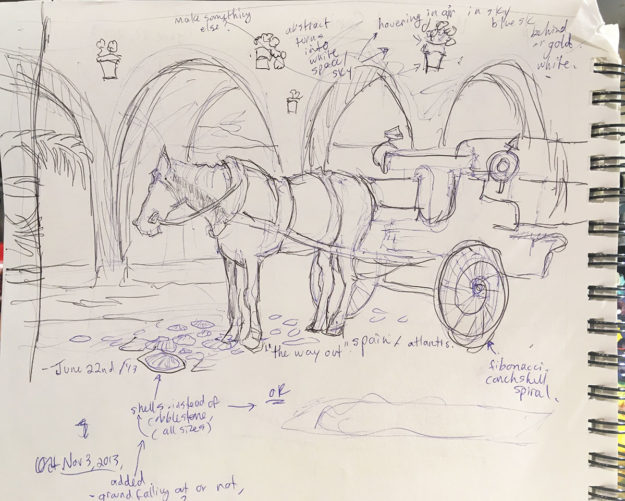 make something
else?
abstract
turns
into
white
space/
sky
hovering in air in sky
blue sk
behind
or gold
white.
"the way out" spain / atlantis.
- June 22nd /13
fibonacci
conchshell
spiral.
shells instead of
cobblestone,
(all sizes)
OR
Nov 3, 2013,
added
- ground falling out or not,